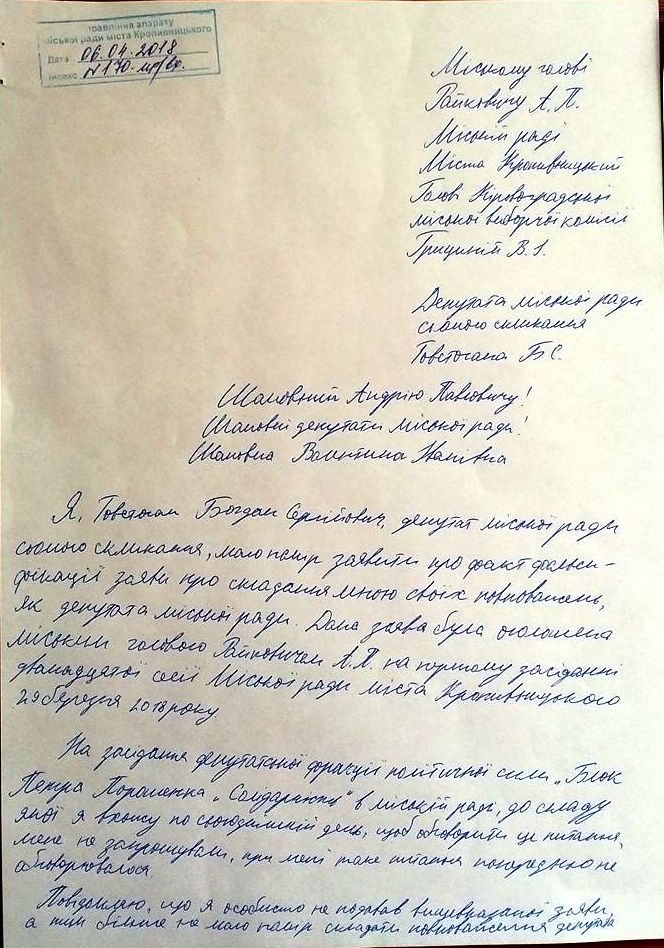 управління апарату
міської ради міста Кропивницького
Дата 06.04.2018
Індекс №170-мр/вр.
Міському голові
Райковичу А.П.
Міській раді
Міста Кропивницький
Голові Кіровоградської
міської виборчої комісії
Грициній В.І.
Депутата міської ради
сьомого скликання
Товстогана Б.С.
Шановний Андрію Павловичу!
Шановні депутати міської ради!
Шановна Валентина Іванівна
Я, Товстоган Богдан Сергійович, депутат міської ради
сьомого скликання, маю намір заявити про факт фальси-
фікації заяви про складання мною своїх повноважень,
як депутата міської ради. Дана заява була оголошена
міським головою Райковичем А.П. на першому засіданні
дванадцятої сесії Міської ради міста Кропивницького
29 березня 2018 року.
На засідання депутатської фракції політичної сили „Блок
Петра Порошенка „Солідарність" в міській раді, до складу
якої я входжу по сьогоднішній день, щоб обговорити це питання,
мене не запрошували, при мені таке питання попередньо не
обговорювалося.
Повідомляю, що я особисто не подавав вищевказаної заяви,
а тим більше не мало намір складати повноваження депутата